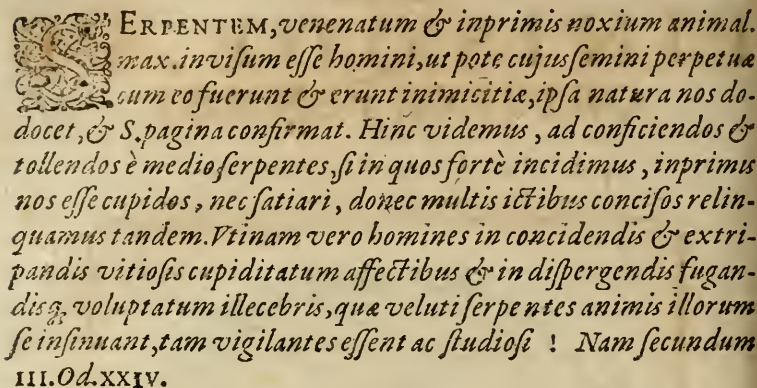 SERPENTEM, venenatum & inprimis noxium animal.
max. invisum esse homini, ut pote cujus semini perpetuæ
cum eo fuerunt & erunt inimicitiæ, ipsa natura nos do-
docet, & S. pagina confirmat. Hinc videmus, ad conficiendos &
tollendos è medio serpentes, si in quos fortè incidimus, inprimis
nos esse cupidos, nec satiari, donec multis ictibus concisos relin-
quamus tandem. Vtinam vero homines in concidendis & extri-
pandis vitiosis cupiditatum affectibus & in dispergendis fugan-
disq; voluptatum illecebris, quæ veluti serpentes animis illorum
se insinuant, tam vigilantes essent ac studiosi ! Nam secundum
III. Od. XXIV.